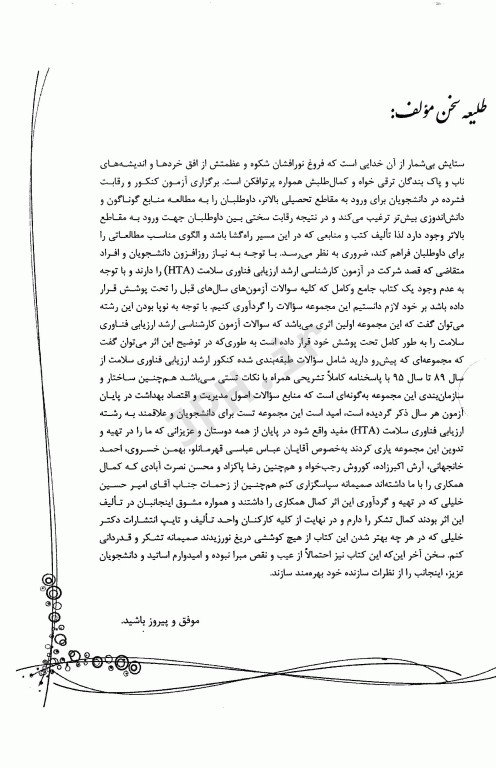 طلیعه سخن مؤلف:
ستایش بی‌شمار از آن خدایی است که فروغ نورافشان شکوه و عظمتش از افق خردها و اندیشه‌های
ناب و پاک بندگان ترقی خواه و کمال‌طلبش همواره پرتوافکن است. برگزاری آزمون کنکور و رقابت
فشرده در دانشجویان برای ورود به مقاطع تحصیلی بالاتر، داوطلبان را به مطالعه منابع گوناگون و
دانش‌اندوزی بیش‌تر ترغیب می‌کند و در نتیجه رقابت سختی بین داوطلبان جهت ورود به مقاطع
بالاتر وجود دارد لذا تألیف کتب و منابعی که در این مسیر راه‌گشا باشد و الگوی مناسب مطالعاتی را
برای داوطلبان فراهم کند، ضروری به نظر می‌رسد. با توجه به نیاز روزافزون دانشجویان و افراد
متقاضی که قصد شرکت در آزمون کارشناسی ارشد ارزیابی فناوری سلامت (HTA) را دارند و با توجه
به عدم وجود یک کتاب جامع وکامل که کلیه سوالات آزمون‌های سال‌های قبل را تحت پوشش قرار
داده باشد بر خود لازم دانستیم این مجموعه سؤالات را گردآوری کنیم. با توجه به نوپا بودن این رشته
می‌توان گفت که این مجموعه اولین اثری می‌باشد که سوالات آزمون کارشناسی ارشد ارزیابی فناوری
سلامت را به طور کامل تحت پوشش خود قرار داده است به طوری‌که در توضیح این اثر می‌توان گفت
که مجموعه‌ای که پیش‌رو دارید شامل سؤالات طبقه‌بندی شده کنکور ارشد ارزیابی فناوری سلامت از
سال ۸۹ تا سال ۹۵ با پاسخنامه کاملاً تشریحی همراه با نکات تستی می‌باشد هم‌چنین ساختار و
سازمان‌بندی این مجموعه به‌گونه‌ای است که منابع سؤالات اصول مدیریت و اقتصاد بهداشت در پایان
آزمون هر سال ذکر گردیده است، امید است این مجموعه تست برای دانشجویان و علاقمند به رشته
ارزیابی فناوری سلامت (HTA) مفید واقع شود در پایان از همه دوستان و عزیزانی که ما را در تهیه و
تدوین این مجموعه یاری کردند به‌خصوص آقایان عباس عباسی قهرمانلو، بهمن خسروی، احمد
خانجهانی، آرش اکبرزاده، کوروش رجب‌خواه و هم‌چنین رضا پاکزاد و محسن نصرت آبادی کـه کمـال
همکاری را با ما داشته‌اند صمیمانه سپاسگزاری کنم هم‌چنین از زحمات جناب آقای امیر حسین
خلیلی که در تهیه و گردآوری این اثر کمال همکاری را داشتند و همواره مشوق اینجانبان در تـألیف
این اثر بودند کمال تشکر را دارم و در نهایت از کلیه کارکنان واحد تـألیف و تایـپ انتشارات دکتـر
خلیلی که در هر چه بهتر شدن این کتاب از هیچ کوششی دریغ نورزیدند صمیمانه تشکـر و قـدردانی
کنم. سخن آخر این‌که این کتاب نیز احتمالاً از عیب و نقص مبرا نبوده و امیدوارم اساتید و دانشجویان
عزیز، اینجانب را از نظرات سازنده خود بهره‌مند سازند.
موفق و پیروز باشید.